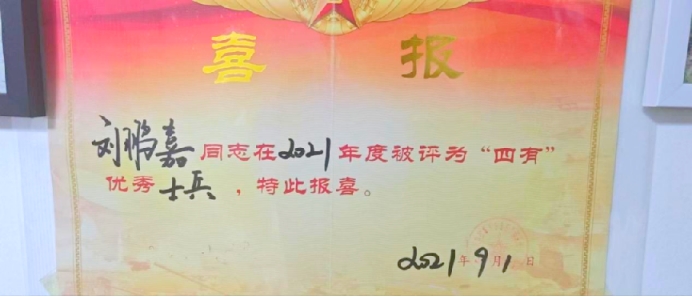 喜报
刘鹏嘉同志在2021年度被评为“四有”
优秀士兵，特此报喜。
2021年9月1日